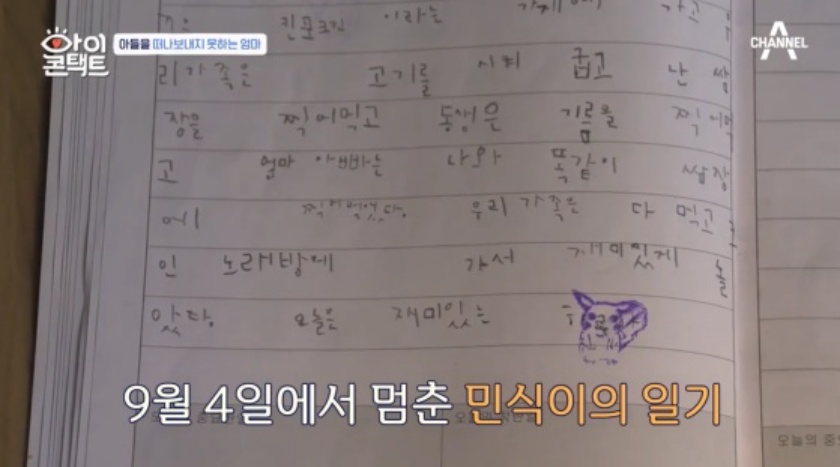 아이
콘택트
아들을 떠나보내지 못하는 엄마
CHANNEL A
이라는 가게에 가고
리가족은 고기를 시켜 굽고 난 쌈
장을 찍어먹고 동생은 기름을 찍어먹
고 엄마 아빠는 나와 똑같이 쌈장
에 찍어먹었다. 우리 가족은 다 먹고 코
인 노래방에 가서 재미있게 놀
았다. 오늘은 재미있는
9월 4일에서 멈춘 민식이의 일기
오늘의 중